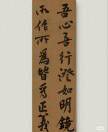 吾心吾行澄如明鏡
所作所為皆為正義